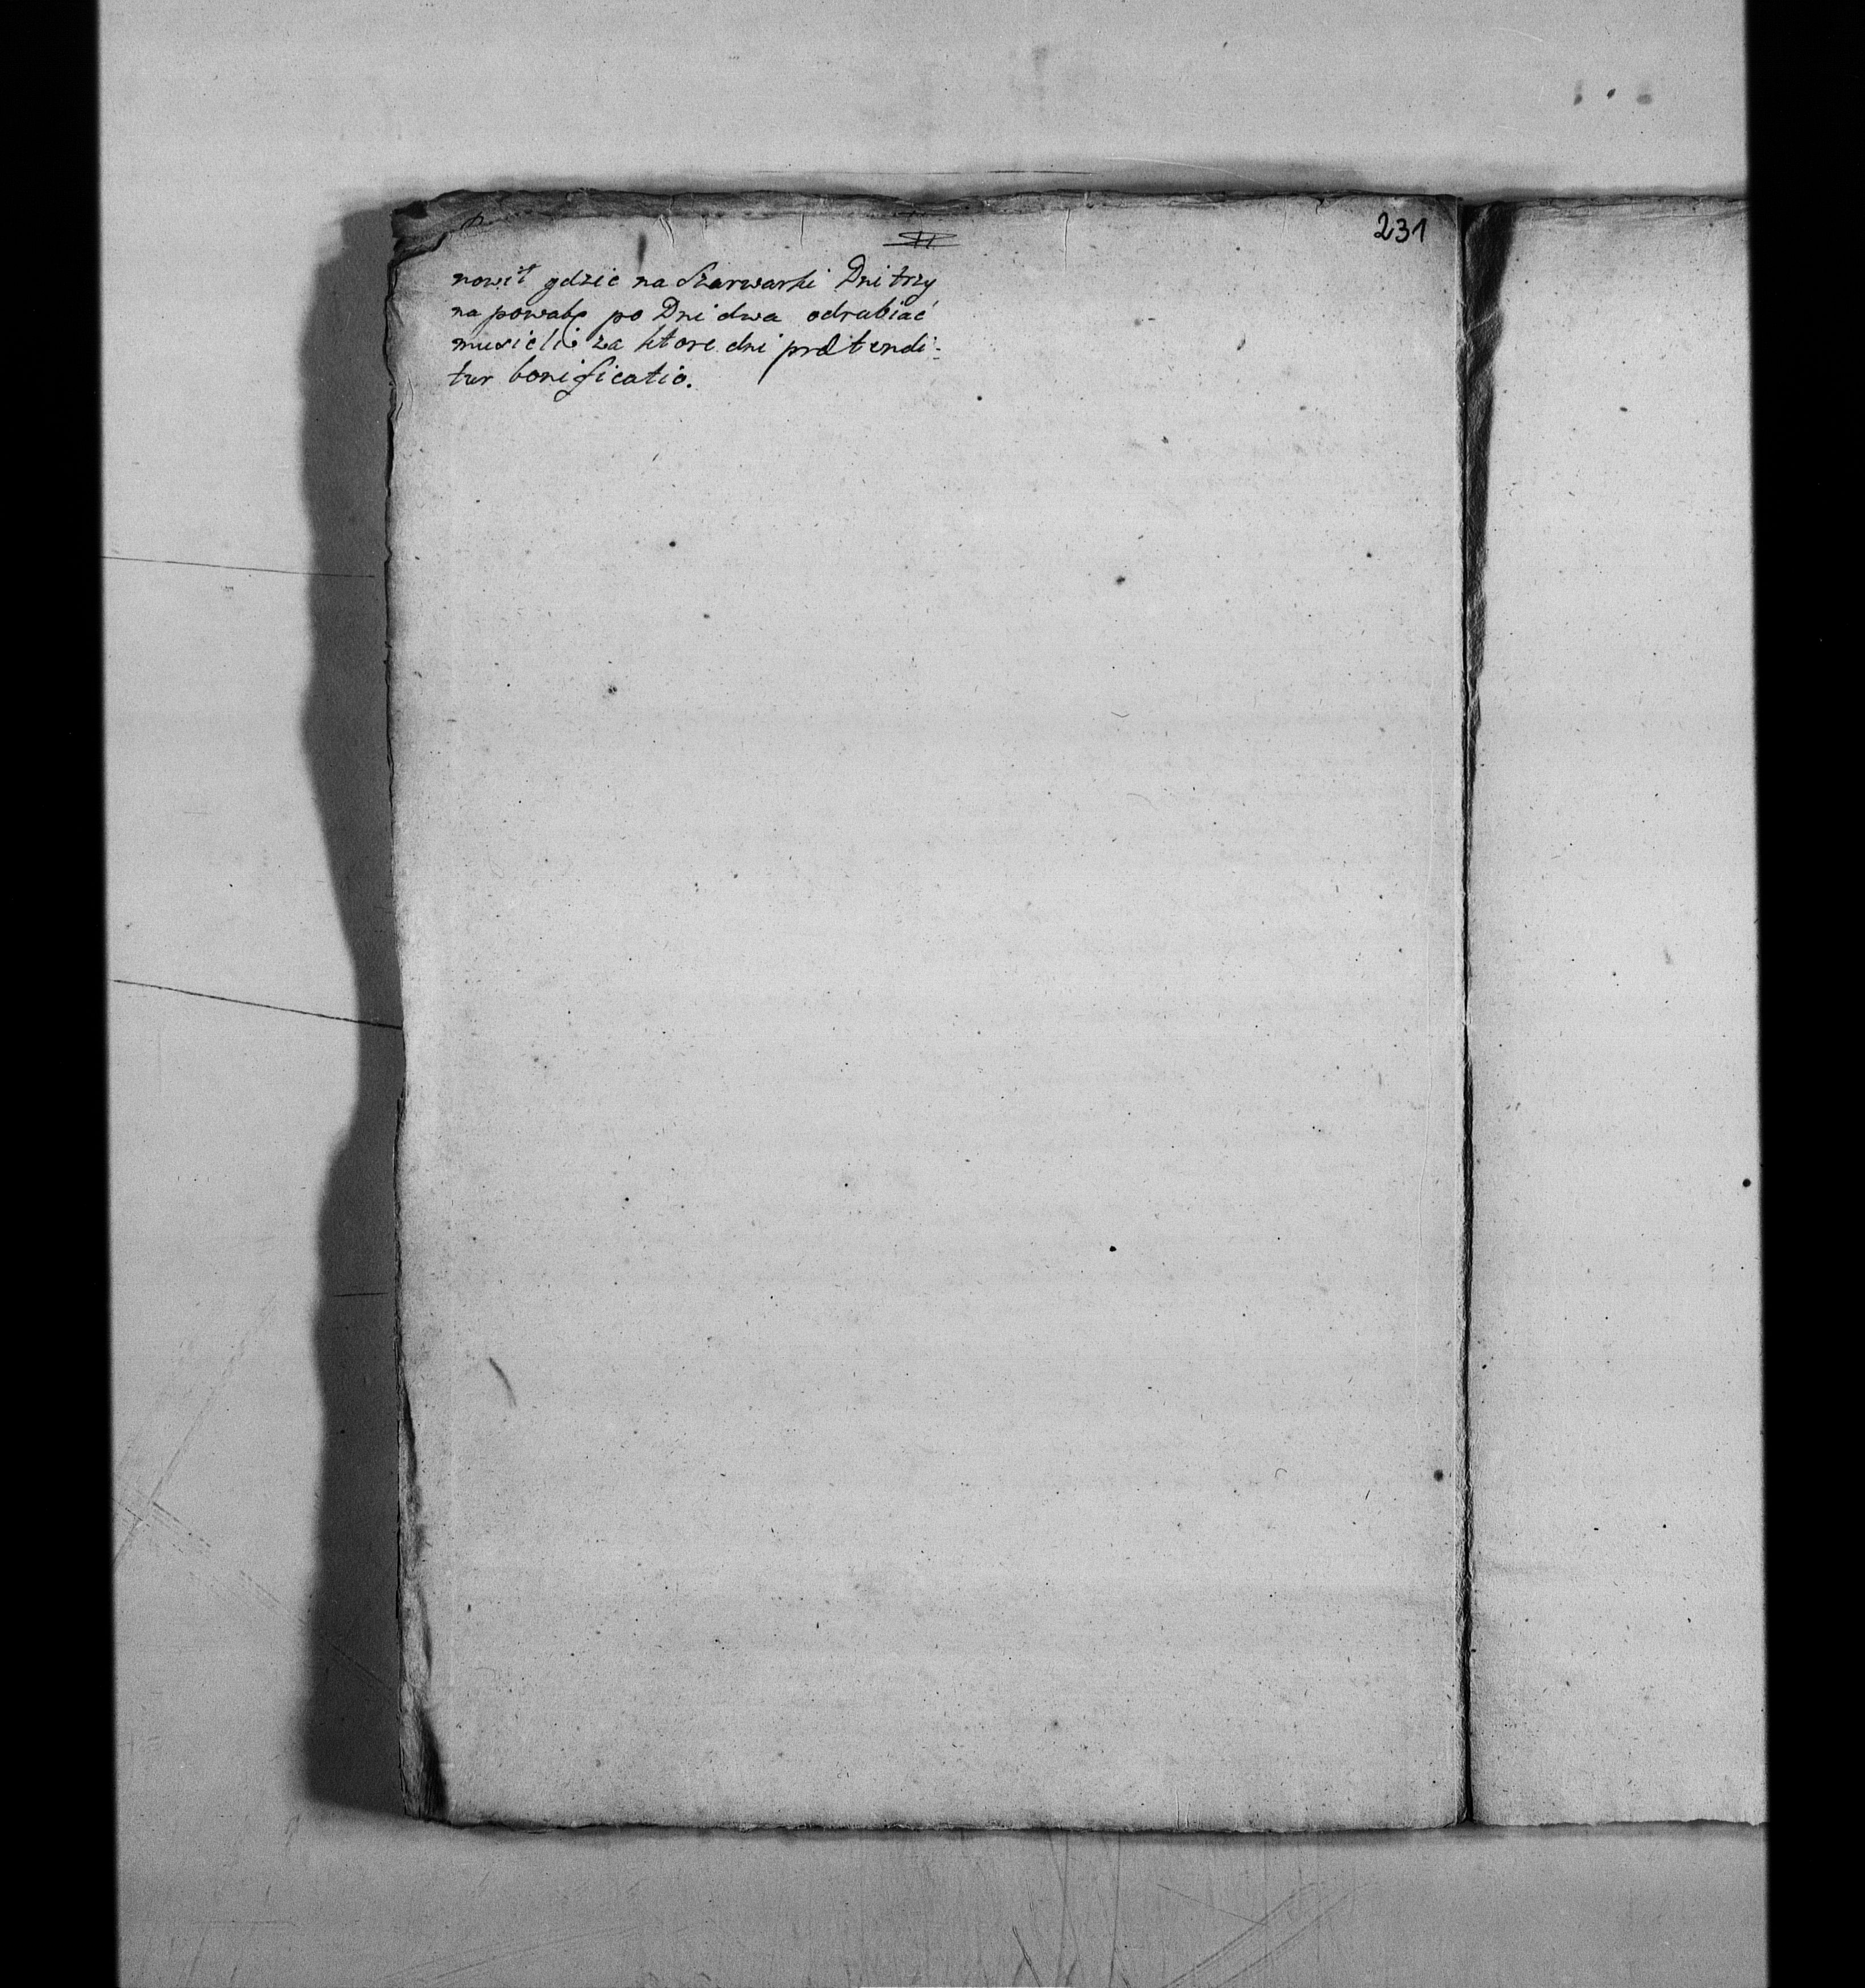 231
nowił gdzie na Szarwarki Dni trzy
na powabę po Dni dwa odrabiać
musieli za ktore dni prætendi-
tur bonificatio.